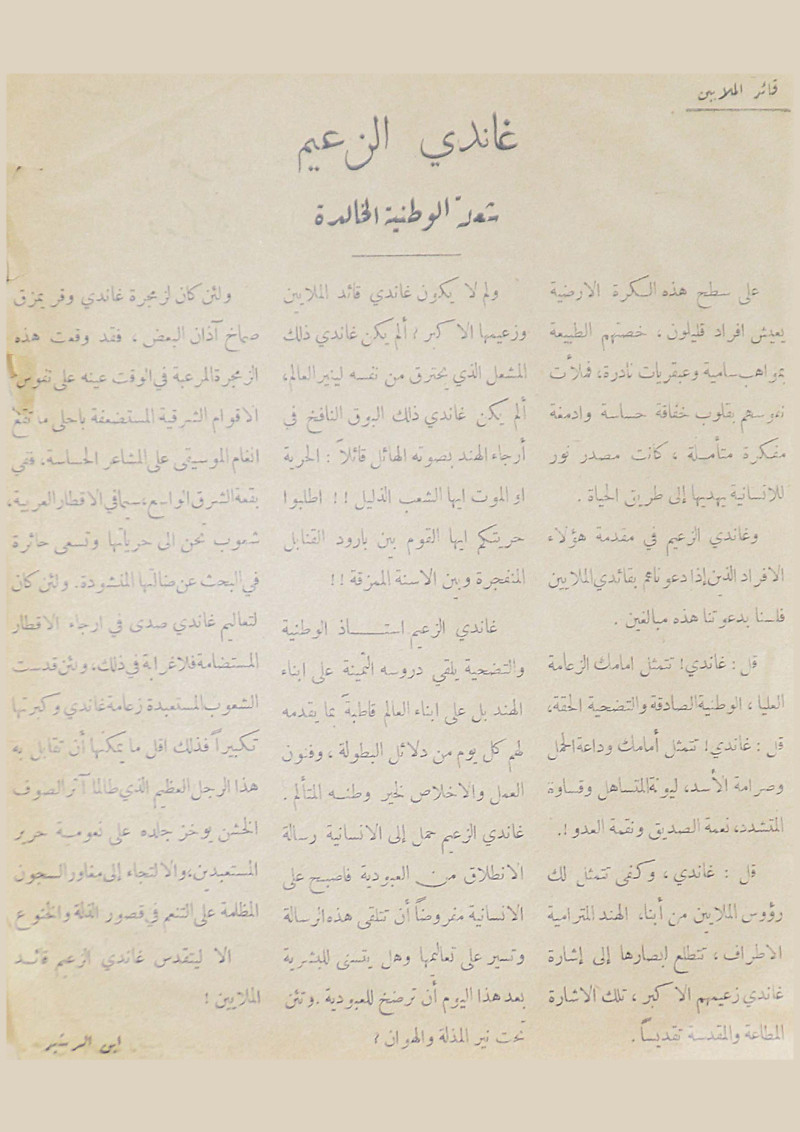 قائد الملايين
غاندي الزعيم
شعلة الوطنية الخالدة
على سطح هذه الكرة الارضية
يعيش افراد قليلون ، خصتهم الطبيعة
بمواهب سامية وعبقريات نادرة، فملأت
نفوسهم بقلوب خفاقة حساسة وادمغة
مفكرة متأملة ، كانت مصدر نور
للانسانية يهديها إلى طريق الحياة .
وغاندي الزعيم في مقدمة هؤلاء
الافراد الذين إذا دعوناهم بقائدي الملايين
فلسنا بدعوتنا هذه مبالغين .
قل : غاندي! تتمثل امامك الزعامة
العليا ، الوطنية الصادقة والتضحية الحقة،
قل : غاندي! تتمثل أمامك وداعة الحمل
وصرامة الأسد، ليونة المتساهل وقساوة
المتشدد، نعمة الصديق ونقمة العدو !.
قل : غاندي ، وكفى تتمثل لك
رؤوس الملايين من أبناء الهند المترامية
الاطراف ، تتطلع ابصارها إلى إشارة
غاندي زعيمهم الاكبر ، تلك الاشارة
المطاعة والمقدسة تقديساً .
ولم لا يكون غاندي قائد الملايين
وزعيمها الاكبر ؟ ألم يكن غاندي ذلك
المشعل الذي يحترق من نفسه لينير العالم،
ألم يكن غاندي ذلك البوق النافخ في
أرجاء الهند بصوته الهائل قائلاً : الحرية
او الموت ايها الشعب الذليل ! ! اطلبوا
حريتكم ايها القوم بين بارود القنابل
المنفجرة وبين الاسنة الممزقة ! !
غاندي الزعيم استــــاذ الوطنية
والتضحية يلقي دروسه الثمينة على ابناء
الهند بل على ابناء العالم قاطبة بما يقدمه
لهم كل يوم من دلائل البطولة ، وفنون
العمل والاخلاص لخير وطنه المتألم .
غاندي الزعيم حمل إلى الانسانية رسالة
الانطلاق من العبودية فاصبح على
الانسانية مفروضاً أن تتلقى هذه الرسالة
وتسير على تعاليمها وهل يتسنى للبشرية
بعد هذا اليوم أن ترضخ للعبودية . وتئن
تحت نير المذلة والهوان ?
ولئن كان لزمجرة غاندي وقر يمزق
صماخ آذان البعض ، فقد وقعت هذه
الزمجرة المرعبة في الوقت عينه على نفوس
الاقوام الشرقية المستضعفة باحلى ما تقع
انغام الموسيقى على المشاعر الحساسة، ففي
بقعة الشرق الواسع، سيما في الاقطار العربية،
شعوب تحن الى حرياتها وتسعى حائرة
في البحث عن ضالتها المنشودة. ولئن كان
لتعاليم غاندي صدى في ارجاء الاقطار
المستضامة فلا غرابة في ذلك، ولئن قدست
الشعوب المستعبدة زعامة غاندي وكبرتها
تكبيراً فذلك اقل ما يمكنها أن تقابل به
هذا الرجل العظيم الذي طالما آثر الصوف
الخشن يوخز جلده على نعومة حرير
المستعبدين، والالتجاء إلى مغاور السجون
المظلمة على التنعم في قصور الذلة والخنوع
الا ليتقدس غاندي الزعيم قائد
الملايين !
ابن الرشيد